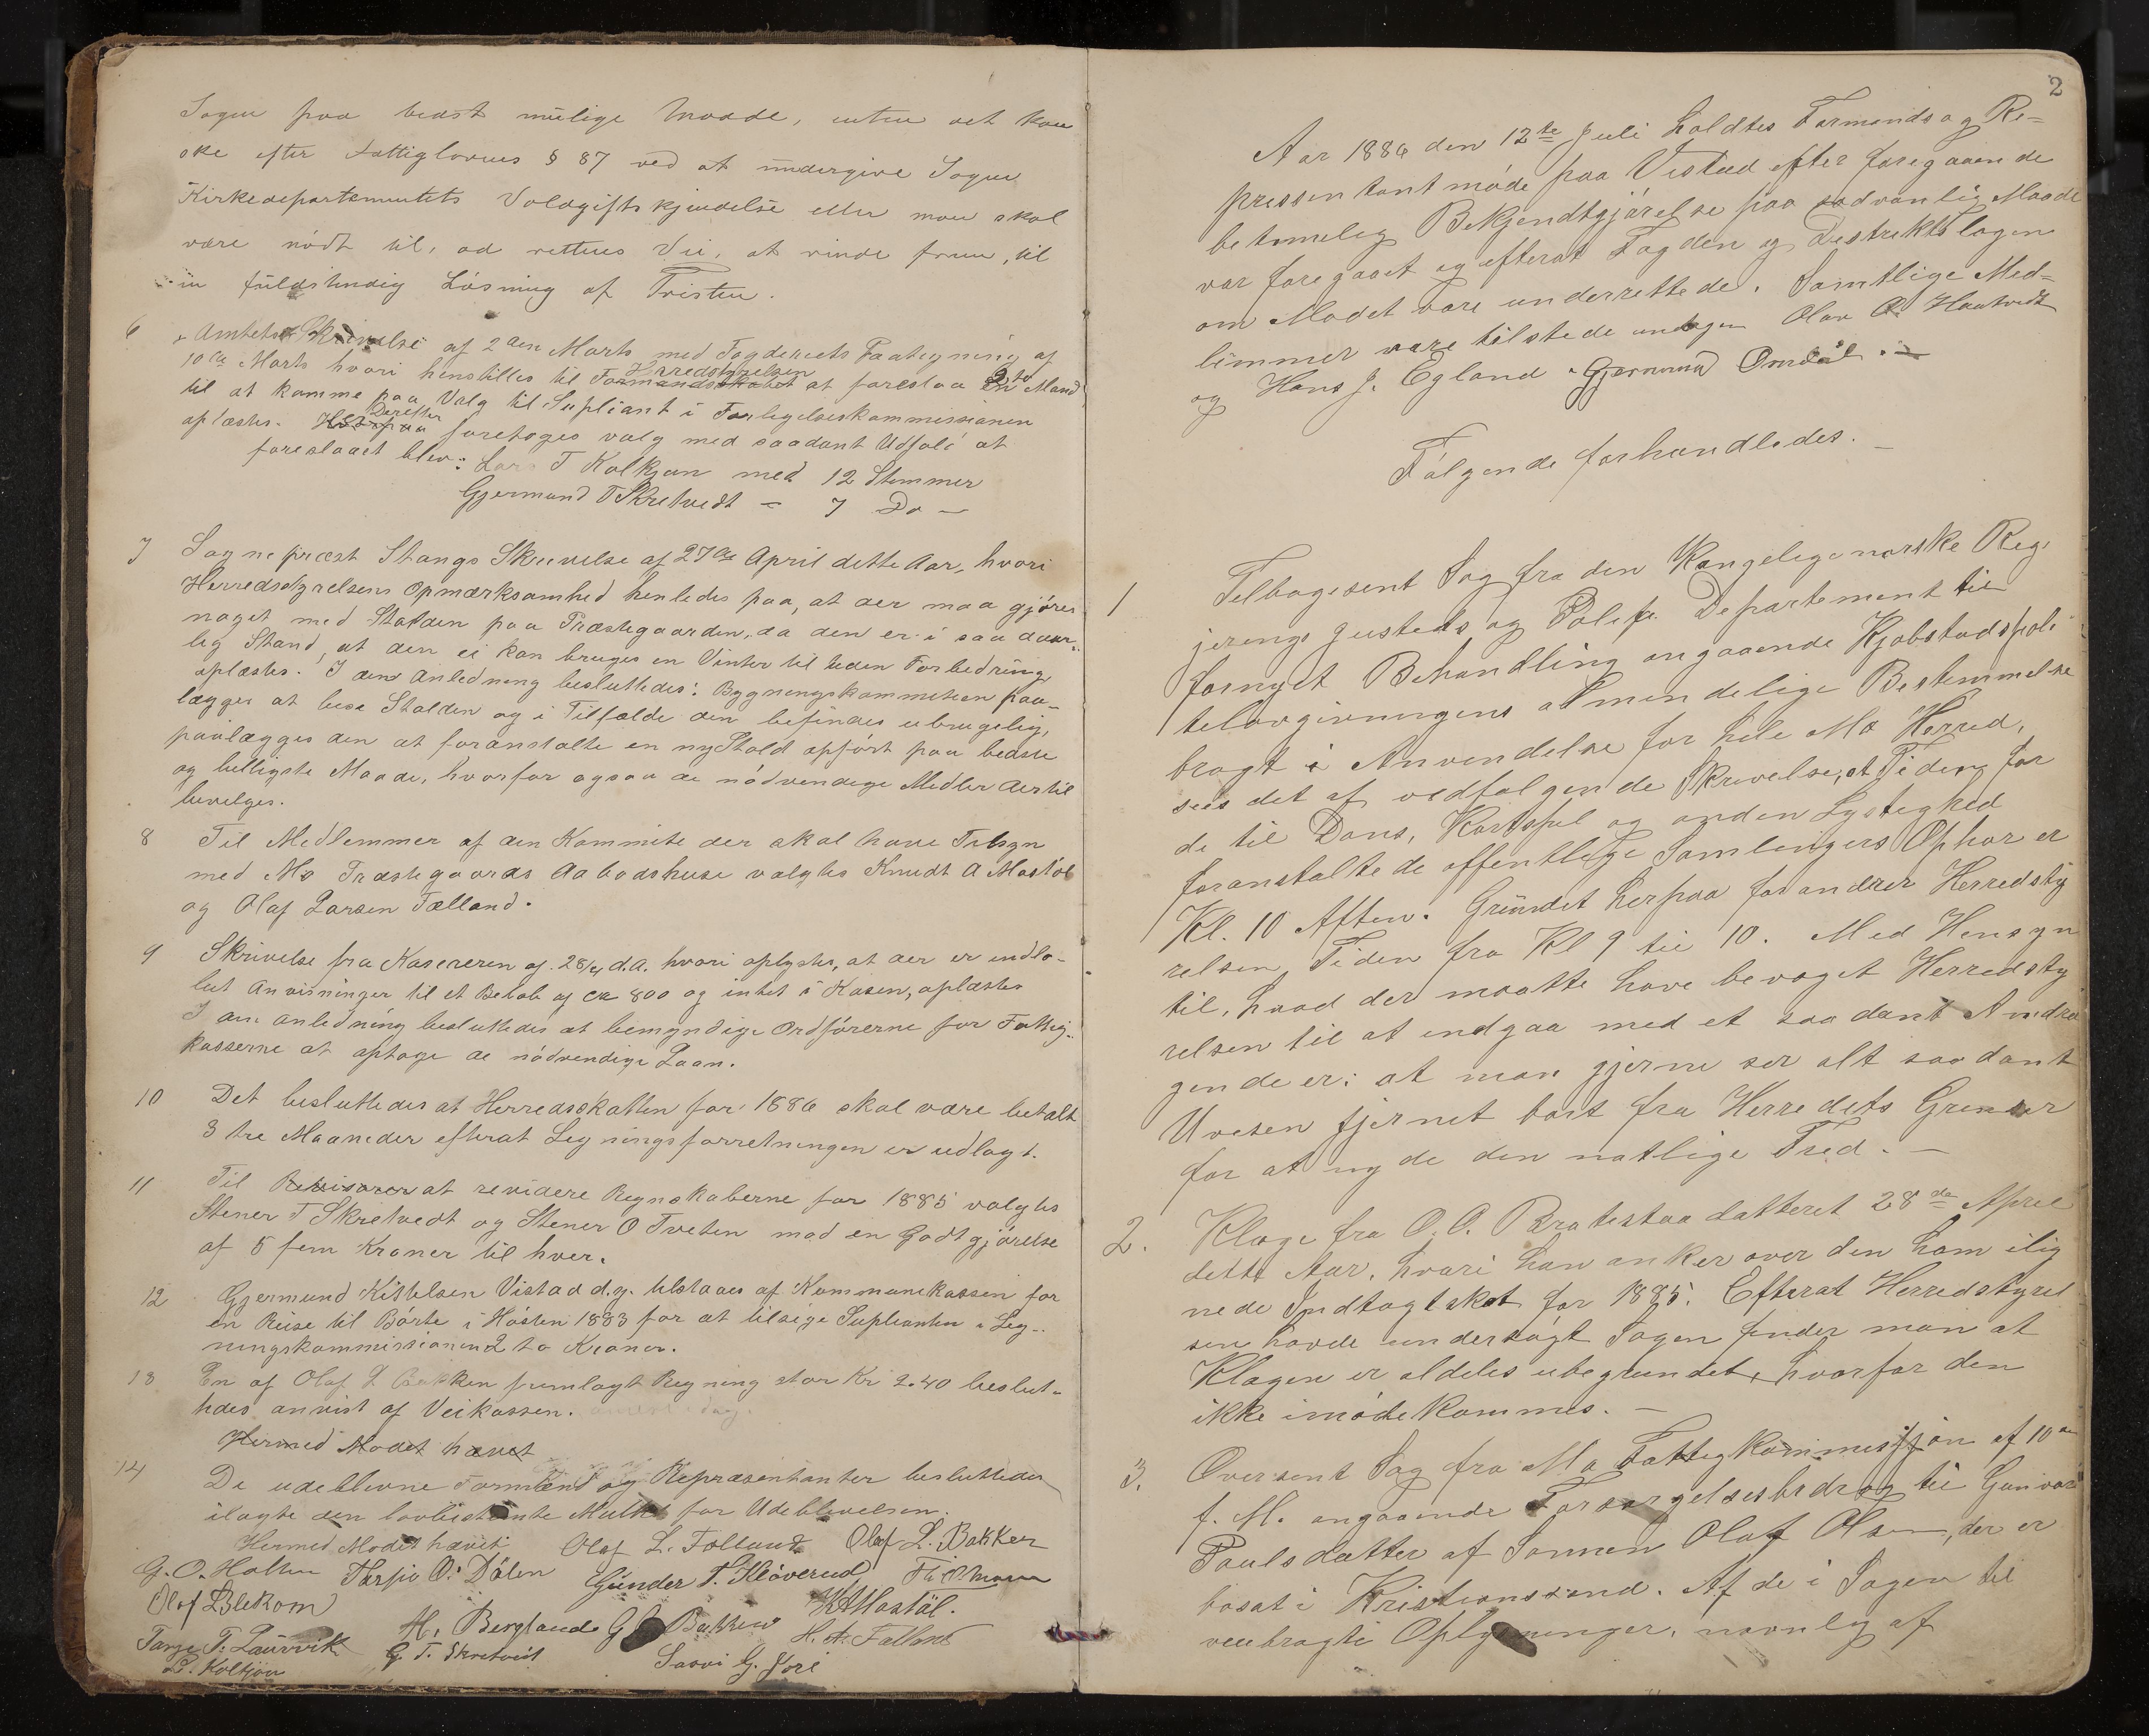 Sagen paa bedst mulige Maade, enten det kan
ske efter Fattiglovens § 87 ved at undergive Sagen
Kirkedepartementets Voldgiftskjendelse eller man skal
være nødt til, ad rettens Vei, at vinde frem, til
en fuldstendig Løsning af Tristen.
6 Amtets Skrivelse af 2den Marts med Fogderiets Paategning af
10de Marts hvori henstilles til Formandskabet Herredstyrelsen at foreslaa en 2 to Mand
til at komme paa Valg til Supliant i Forligelseskommissionen
oplæstes. Herpaa Derefter foretoges valg med saadant Udfald at
foreslaaet blev: Lars T Kolkjøn med 12 Stemmer
Gjermund T Skretvedt – 7 Do –
7 Sognepræst Stangs Skrivelse af 27de April dette Aar, hvori
Herredstyrelsens Opmærksomhed henledes paa, at der maa gjøres
noget med Stalden paa Præstegaarden, da den er i saa daar-
lig Stand, at den ei kan bruges en Vinter til uden Forbedring,
oplæstes. I den Anledning besluttedes: Bygningskommiteen paa-
lægges at bese Stalden og i Tilfælde den befindes ubrugelig,
paalægges den at foranstalte en ny Stald opført paa bedste
og billigste Maade, hvorfor ogsaa de nødvendige Midler dertil
bevilges.
8 Til Medlemmer af den Kommite der skal have Tilsyn
med Mo Præstegaards Aabodshuse valgtes Knudt A Mostøl
og Olaf Larsen Følland.
9 Skrivelse fra Kasereren af 28/4 d.A. hvori oplystes, at der er indlø-
bet Anvisninger til et Beløb af ca 800 og intet i Kasen, oplæstes
I den anledning besluttedes at bemyndige Ordførerne for Fattig-
kasserne at optage de nødvendige Laan.
10 Det besluttedes at Herredsskatten for 1886 skal være betalt
3 tre Maaneder efterat Ligningsforretningen er udlagt.
11 Til Revisorer at revidere Regnskaberne for 1885 valgtes
Stener T Skretvedt og Stener O Tveten mod en Godtgjørelse
af 5 fem Kroner til hver.
12 Gjermund Kittelsen Vistad d.y. tilstaaes af Kommunekassen for
en Reise til Børte i Høsten 1883 for at tilsige Suplianten i Lig-
ningskommissionen 2 to Kroner.
13 En af Olaf L Bakken fremlagt Regning stor Kr 2.40 beslut-
tedes anvist af Veikassen.
Hermed Modet hævet
14 De udeblevne Formænd og Repræsentanter besluttedes
ilagte den lovbestemte Mulkt for Udeblivelsen.
Hermed Modet hævet Olaf L. Følland Olaf L. Bakken
G. O. Holten Tarjei O. Dålen Gunder T. Kløverud
Olaf Blekom H. Bergland G Bakken K A Mostøl.
Tarje T. Laurvik G. T. Skretveit H. A. Følland
L. Kolkjøn G. Jore
2
Aar 1886 den 12te Juli holdtes Formands og Re=
præssentantmøde paa Vistad efter foregaaende
betimelig Bekjendtgjørelse paa sædvanlig Maade
var foregaaet og efterat Fogden og Destriktslægen
om Mødet vare underrettede. Samtlige Med=
limmer vare tilstede undtagen Olav A. Haatvedt
og Hans J. Egland Gjermund Omdal. –
Følgende forhandledes. –
1 Tilbagesent Sag fra den Kongelige norske Reg-
jerings Justits og Polise Departement til
fornyet Behandling angaaende Kjøbstadspoli
tilovgivningens almindelige Bestemmelse
bragt i Anvendelse for hele Mo Herred,
sees det af vedfølgende Skrivelse, at Tiden for
de til Dans, Kortspil og anden Lystighed
foranstaltede offentlige Samlingers Ophør er
Kl. 10 Aften. Grundet herpaa forandrer Herredsty
relsen Tiden fra Kl 9 til 10. Med Hensyn
til, hvad der maatte have bevæget Herredsty
relsen til at indgaa med et saadant Andra
gende er: at man gjerne ser alt saadant
Uvesen fjernet bort fra Herredets Grenser
for at nyde den natlige Fred. –
2. Klage fra O. O. Bratestaa datteret 28de April
dette Aar, hvori han anker over den ham ilig
nede Indtægtskat for 1885. Efterat Herredstyrel
sen havde undersøgt Sagen finder man at
Klagen er aldeles ubegrundet, hvorfor den
ikke imødekommes. –
3. Oversent Sag fra Mo Fattigkommissjon af 10de
f. M. angaaende Forsørgelsesbidrag til Gunvor
Paulsdatter af Sønnen Olaf Olsen, der er
bosat i Kristianssand. Af de i Sagen til
veiebragte Oplysninger, navnlig af